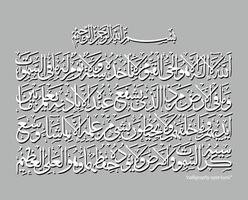 بِسْمِ اللَّهِ الرَّحْمَٰنِ الرَّحِيمِ
اللَّهُ لَا إِلَٰهَ إِلَّا هُوَ الْحَيُّ الْقَيُّومُ لَا تَأْخُذُهُ سِنَةٌ وَلَا نَوْمٌ لَهُ مَا فِي السَّمَٰوَٰتِ
وَمَا فِي الْأَرْضِ مَنْ ذَا الَّذِي يَشْفَعُ عِنْدَهُ إِلَّا بِإِذْنِهِ يَعْلَمُ مَا بَيْنَ
أَيْدِيهِمْ وَمَا خَلْفَهُمْ وَلَا يُحِيطُونَ بِشَيْءٍ مِنْ عِلْمِهِ إِلَّا بِمَا شَاءَ وَسِعَ
كُرْسِيُّهُ السَّمَٰوَٰتِ وَالْأَرْضَ وَلَا يَئُودُهُ حِفْظُهُمَا وَهُوَ الْعَلِيُّ الْعَظِيمُ
"calligraphy ayat kursi"